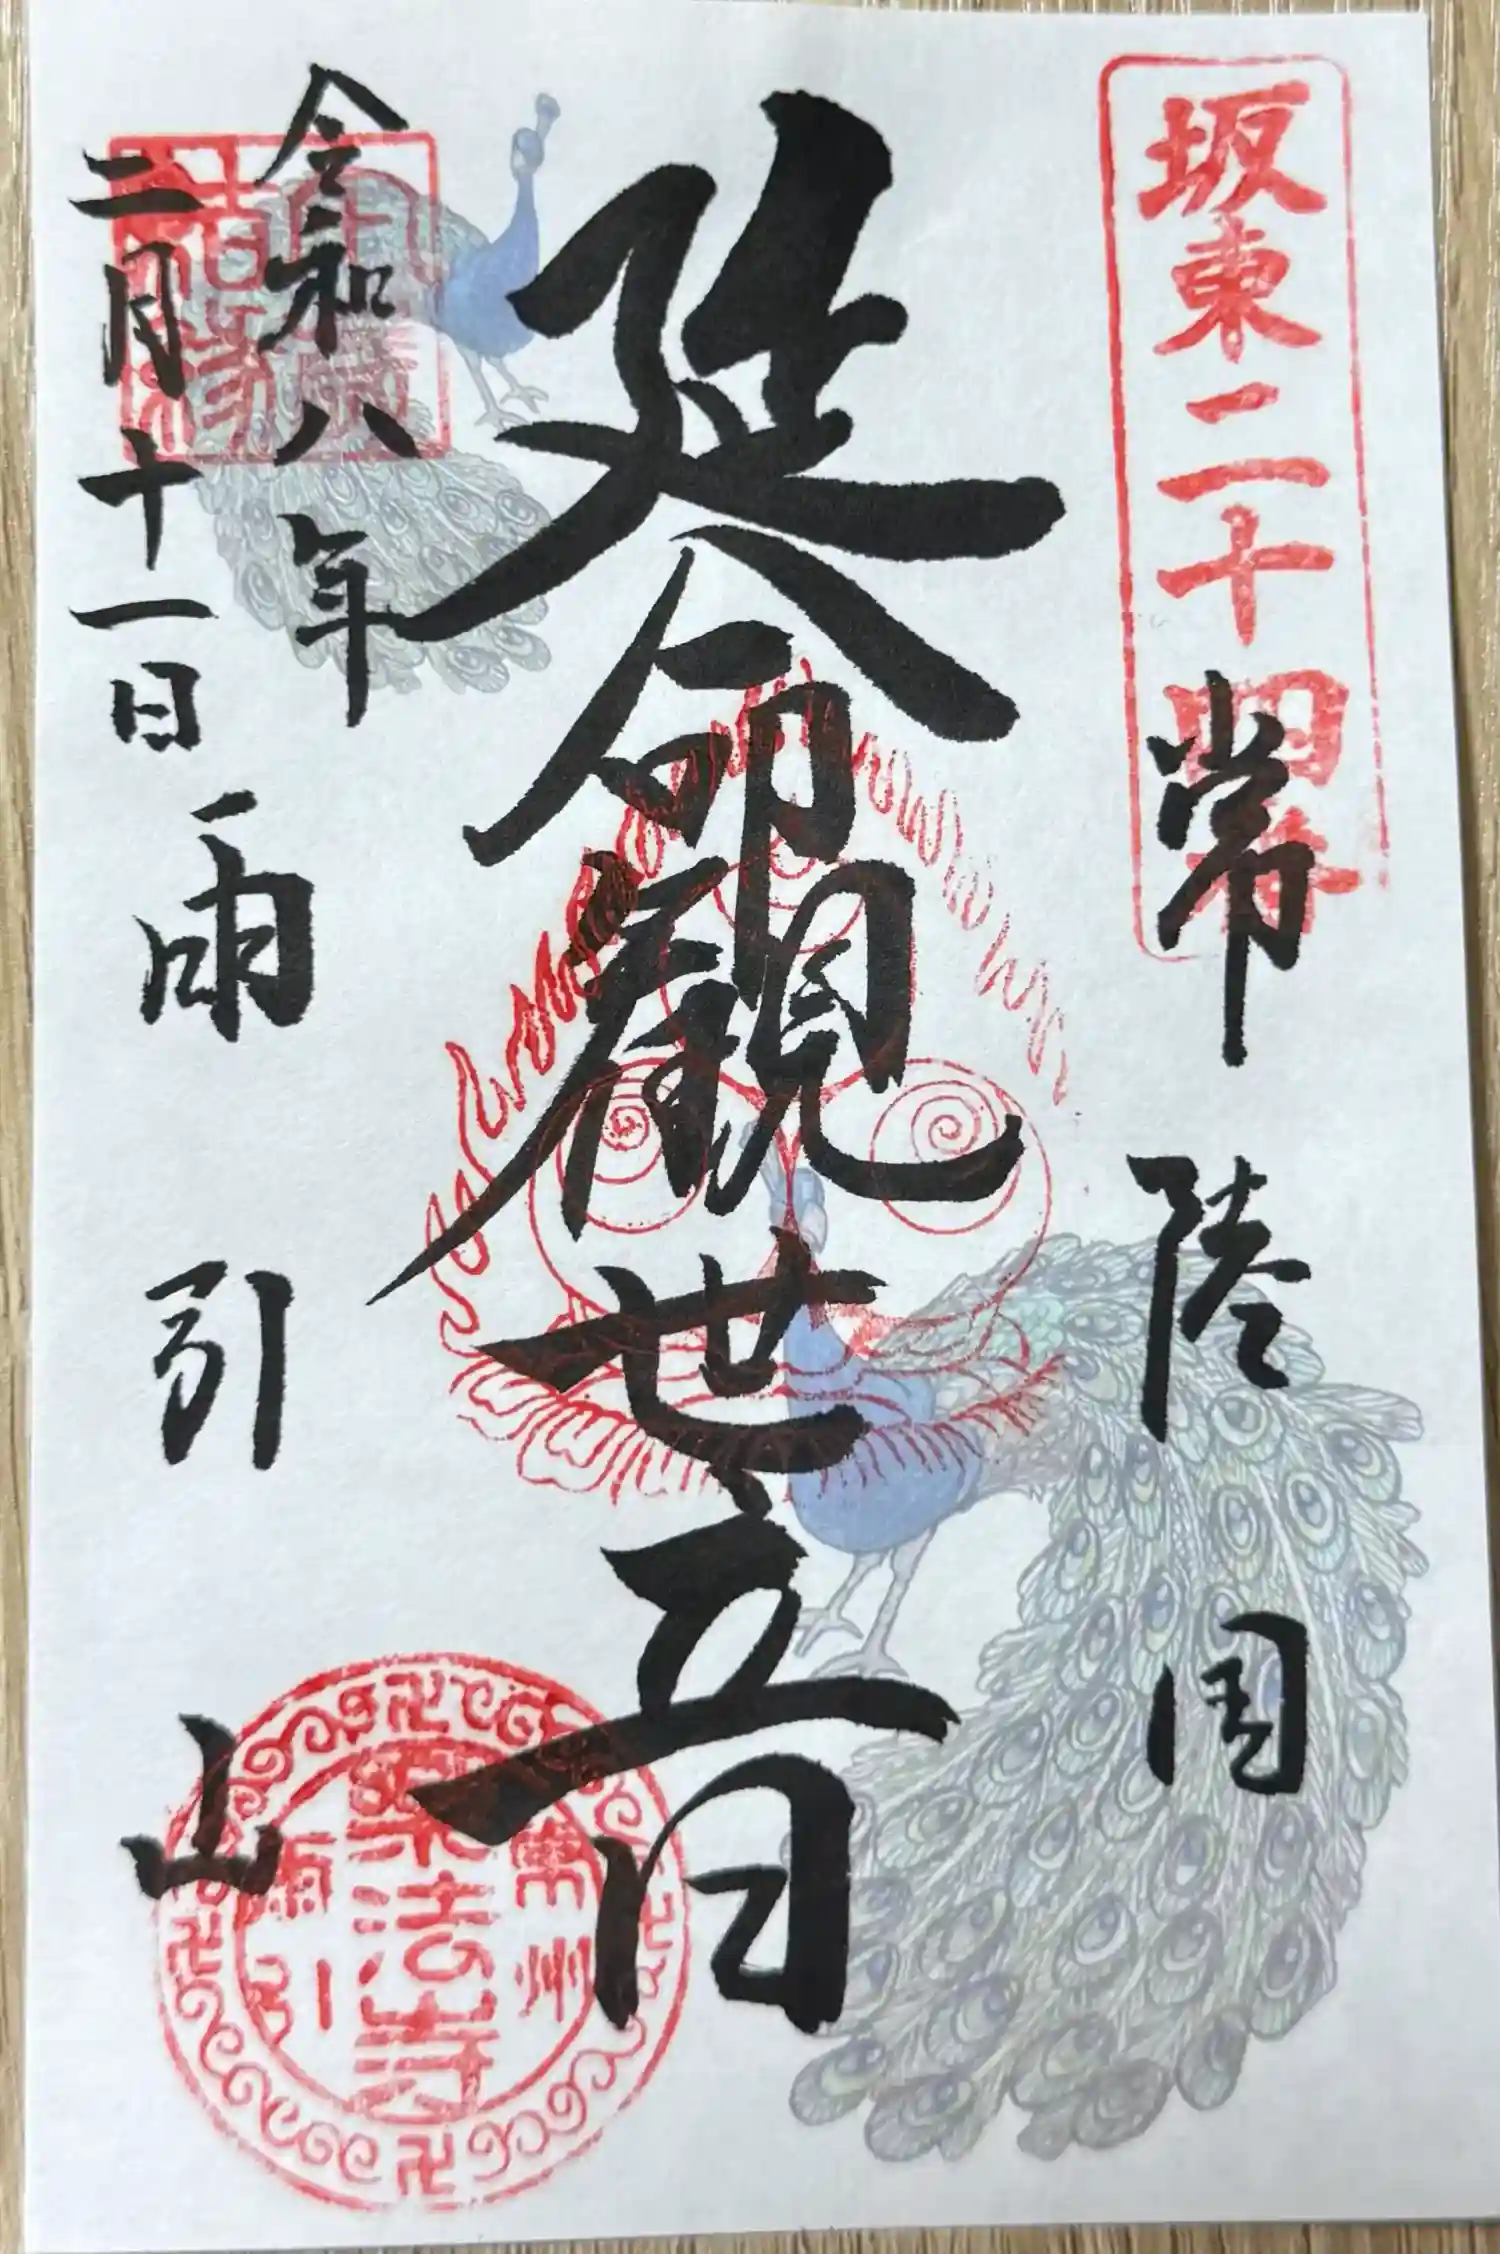 坂東二十四番
常陸国
延命観世音
令和八年
二月十一日
雨引山
常州
楽法寺
雨引